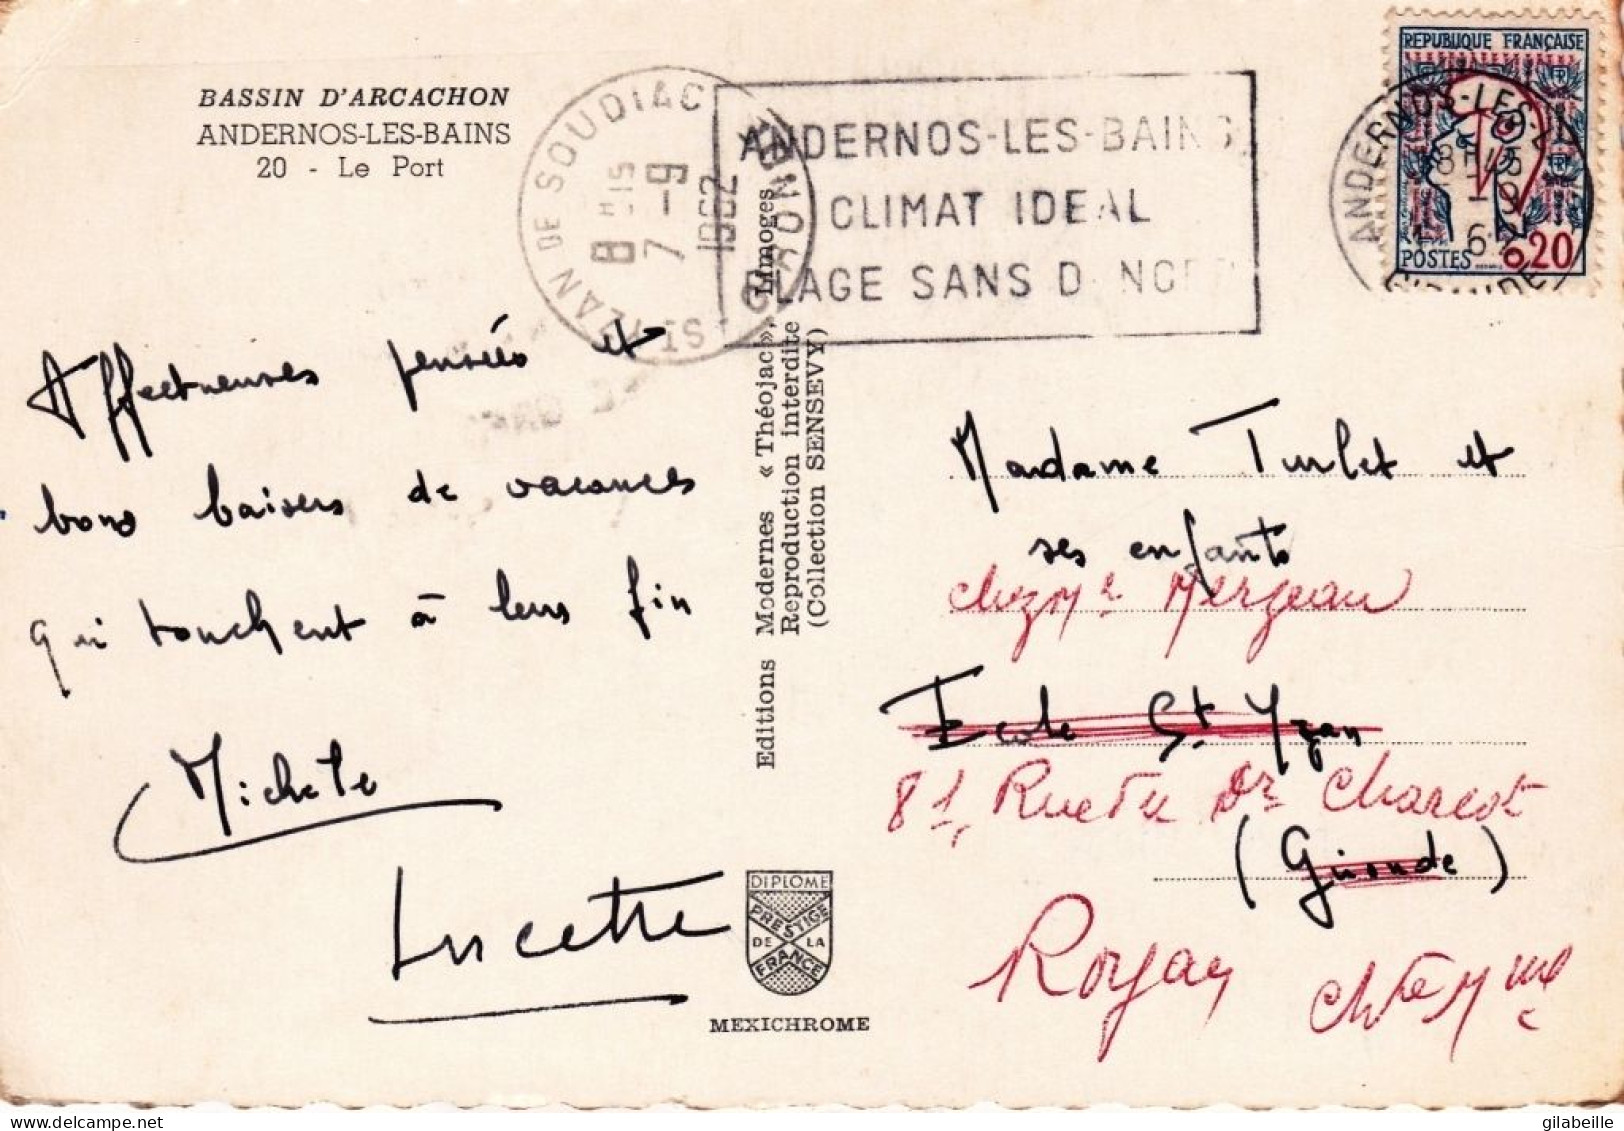 BASSIN D'ARCACHON
ANDERNOS-LES-BAINS
20 - Le Port
ST YZAN DE SOUDIAC GIRONDE
8 H 15
7 - 9
1962
ANDERNOS-LES-BAINS
CLIMAT IDEAL
PLAGE SANS D NGE
REPUBLIQUE FRANÇAISE
POSTES 0,20
ANDERNOS-LES-B
GIRONDE
18H45
Affectueuses pensées et
bons baisers de vacances
qui touchent à leur fin
Michele
Lucette
Editions Modernes « Théojac », Limoges
Reproduction interdite
(Collection SENSEVY)
DIPLOME
PRESTIGE
DE LA
FRANCE
MEXICHROME
Madame Turlet et
ses enfants
chez Mr Mergeau
Ecole St Yzan
81, Rue du Dr Charcot
(Gironde)
Royan
Chte Mme
gilabeille